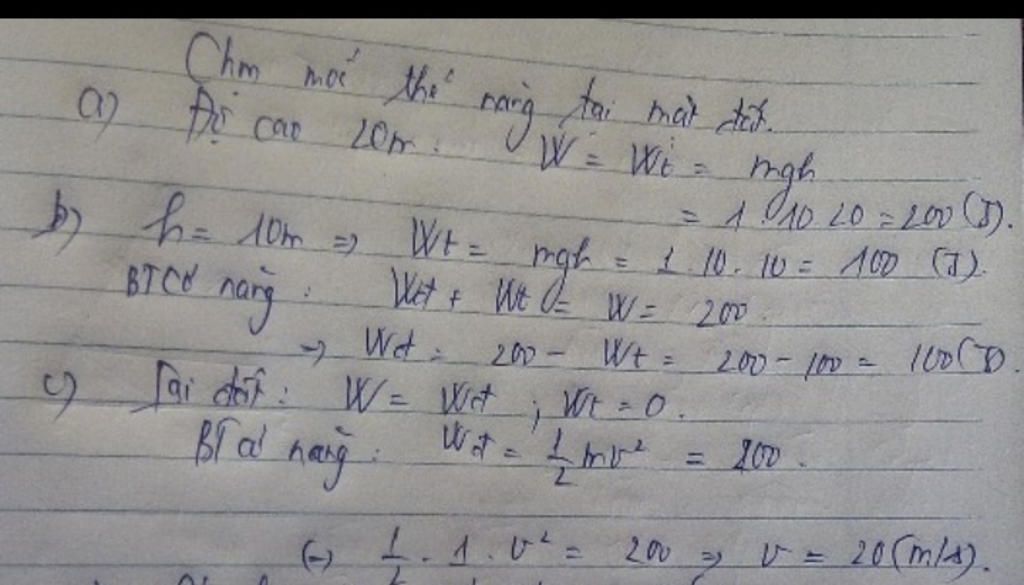 Chọn mốc thế năng tại mặt đất.
a) Độ cao 20m: W = Wt = mgh
= 1.10.20 = 200 (J).
b) h = 10m => Wt = mgh = 1.10.10 = 100 (J).
BT Cơ năng: Wđ + Wt = W = 200.
-> Wđ = 200 - Wt = 200 - 100 = 100 (J).
c) Tại đất: W = Wđ ; Wt = 0.
BT cơ năng: Wđ = 1/2 mv² = 200.
(=) 1/2 . 1 . v² = 200 => v = 20 (m/s).